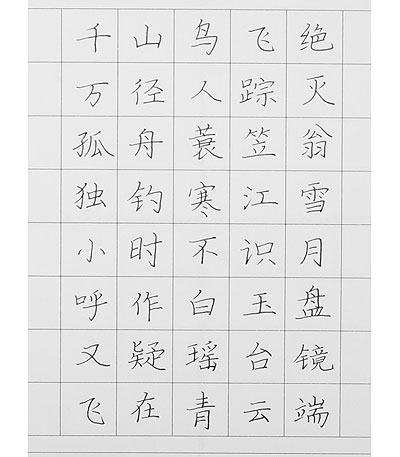 千山鸟飞绝
万径人踪灭
孤舟蓑笠翁
独钓寒江雪
小时不识月
呼作白玉盘
又疑瑶台镜
飞在青云端